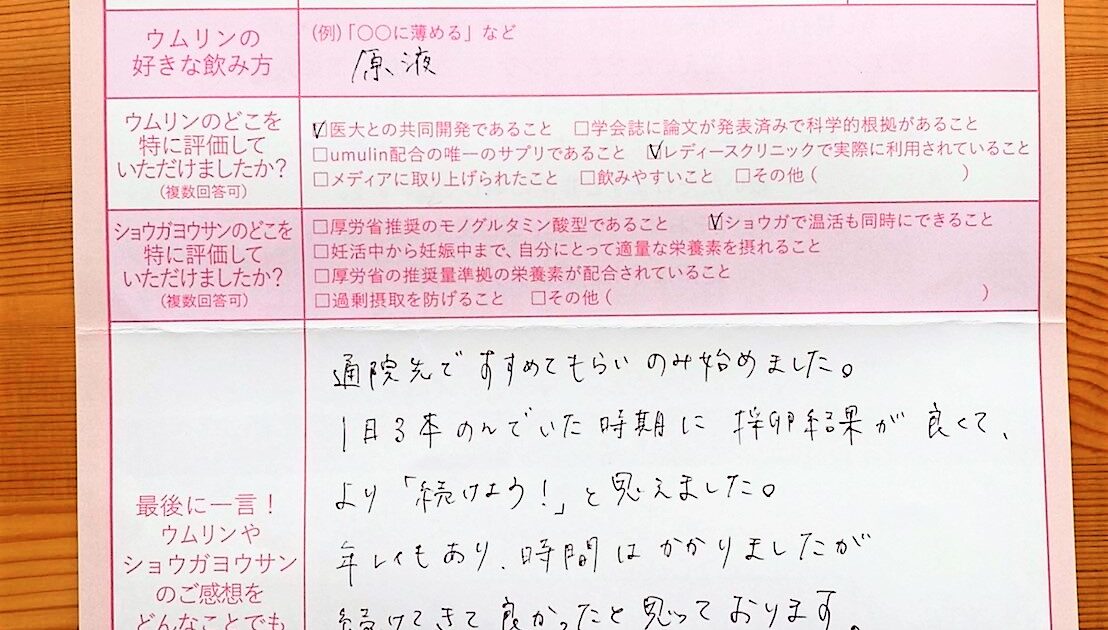 ウムリンの
好きな飲み方
(例)「〇〇に薄める」など
原液
ウムリンのどこを
特に評価して
いただけましたか?
(複数回答可)
☑医大との共同開発であること □学会誌に論文が発表済みで科学的根拠があること
□umulin配合の唯一のサプリであること ☑レディースクリニックで実際に利用されていること
□メディアに取り上げられたこと □飲みやすいこと □その他( )
ショウガヨウサンのどこを
特に評価して
いただけましたか?
(複数回答可)
□厚労省推奨のモノグルタミン酸型であること ☑ショウガで温活も同時にできること
□妊活中から妊娠中まで、自分にとって適量な栄養素を摂れること
□厚労省の推奨量準拠の栄養素が配合されていること
□過剰摂取を防げること □その他( )
最後に一言!
ウムリンや
ショウガヨウサン
のご感想を
どんなことでも
通院先ですすめてもらいのみ始めました。
1日3本のんでいた時期に採卵結果が良くて、
より「続けよう!」と思えました。
年レイもあり、時間はかかりましたが
続けてきて良かったと思っております。